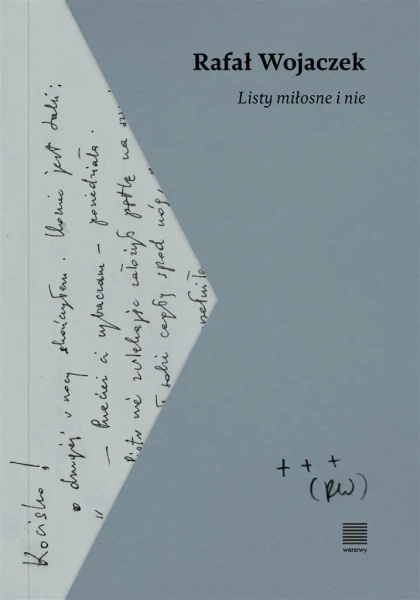 Rafał Wojaczek
Listy miłosne i nie
Kocisko!
o drugiej w nocy skończyłem. Koniec jest taki:
„ – Przecież ci wybaczam – powiedziała.
Piotr nie zwlekając założył pętlę na
sobie spod nóg,
+ + +
(RW)
warstwy